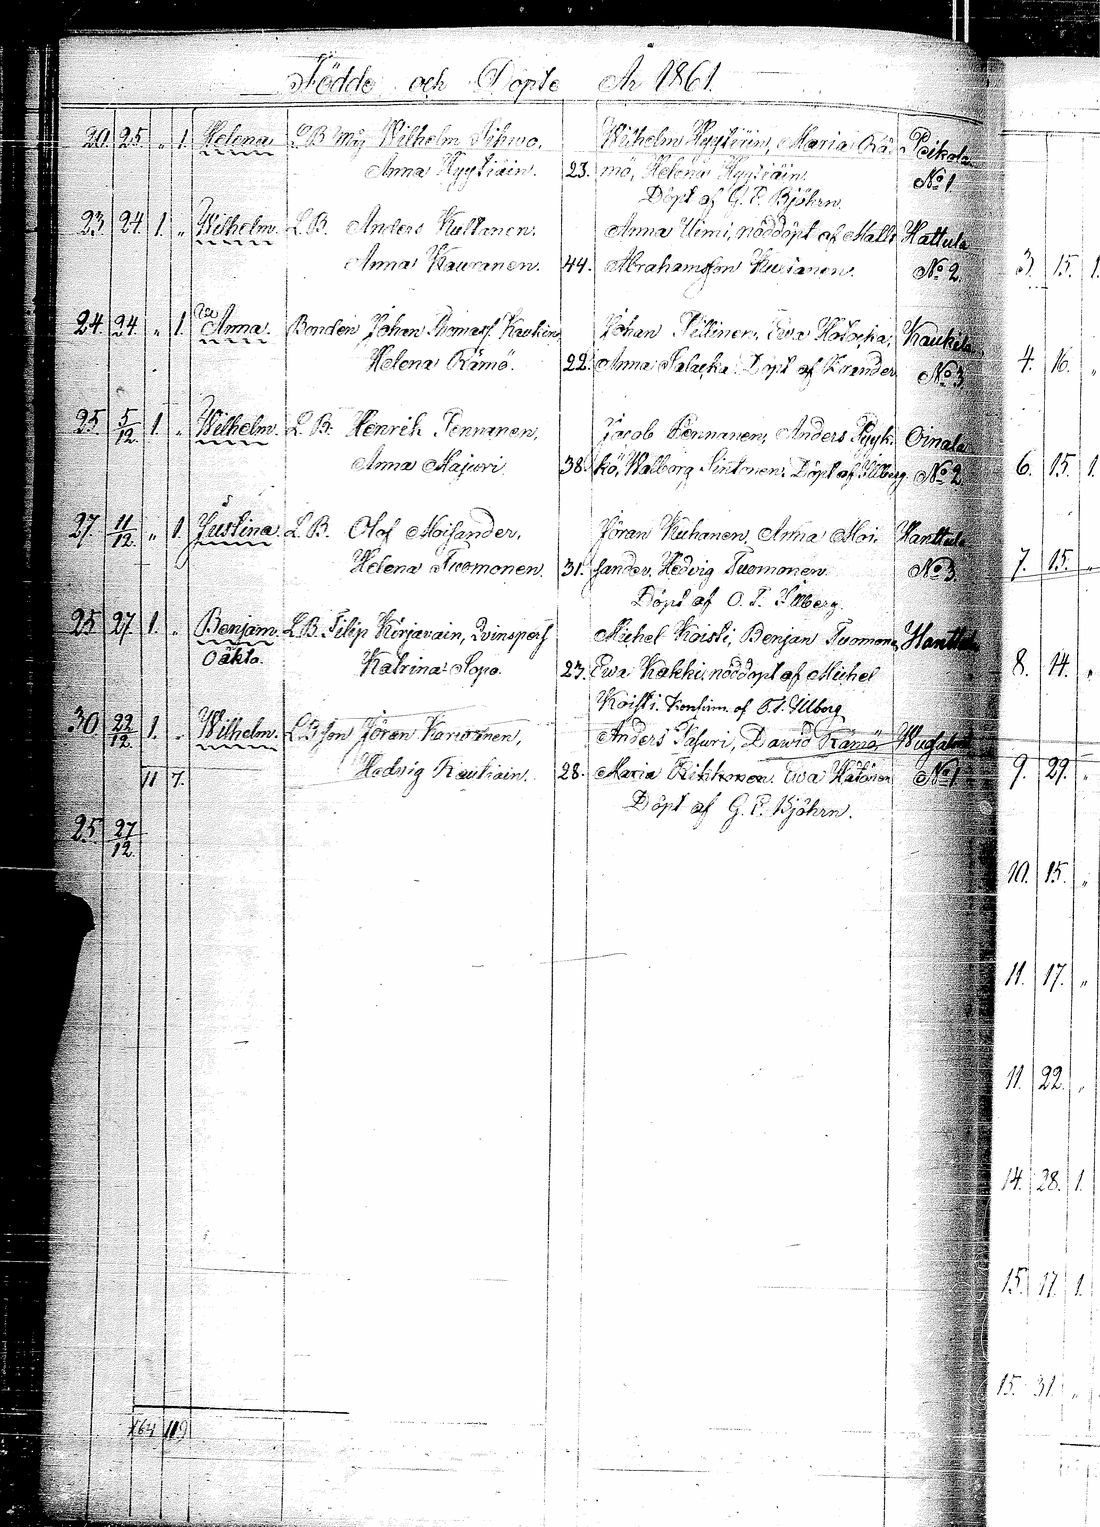 Födde och Döpte År 1861.
20. 25. „ 1. Helena L. B. Måg Wilhelm Sihwo, Wilhelm Hyytiäin, Maria Rä- Peikola
Anna Hyytiäin. 23. mö, Helena Hyytiäin. No 1.
Döpt af G. E. Björn.
23. 24. 1. „ Wilhelm. L. B. Anders Kultanen, Anna Uimi, nöddöpt af Matts Hattula
Anna Kauranen. 44. Abrahamsson Kultanen. No 2.
24. 24. „ 1. Anna. Bonden Johan Thomass Kaukin, Johan Pillinen, Ewa Kaukiela
Helena Rämö. 22. Anna Döpt af No 3.
25. 5/12. 1. „ Wilhelm. L. B. Henrik Pennanen, Jacob Pennanen, Anders Pyyk- Oinala
Anna Majuri 38. kö, Walborg Sintonen. Döpt af Illberg. No 2.
27. 11/12. „ 1. Justina. L. B. Olof Moisander, Jöran Kuhanen, Anna Moi- Hanttula
Helena Tuomonen. 31. sander, Hedvig Tuomonen. No 3.
Döpt af O. T. Illberg.
25. 27. 1. „ Benjam. L. B. Filip Kirjavain, Michel Koisti, Benjam Tuomone, Hanttula
Oäkta. Katrina Sopo. 23. Ewa Kakki, nöddöpt af Michel
Koisti. af O. T. Illberg
30. 22/12. 1. „ Wilhelm. L. B. son Jöran Anders Tasuri, Dawid Rämö
11 7. Hedvig 28. Maria Ewa Hatonen No 1.
Döpt af G. E. Björn.
25. 27/12.
164 119
3. 15. 1.
4. 16. „
6. 15. 1.
7. 15. „
8. 14. „
9. 29. „
10. 15. „
11. 17. „
11. 22. „
14. 28. 1.
15. 17. 1.
15. 31. „